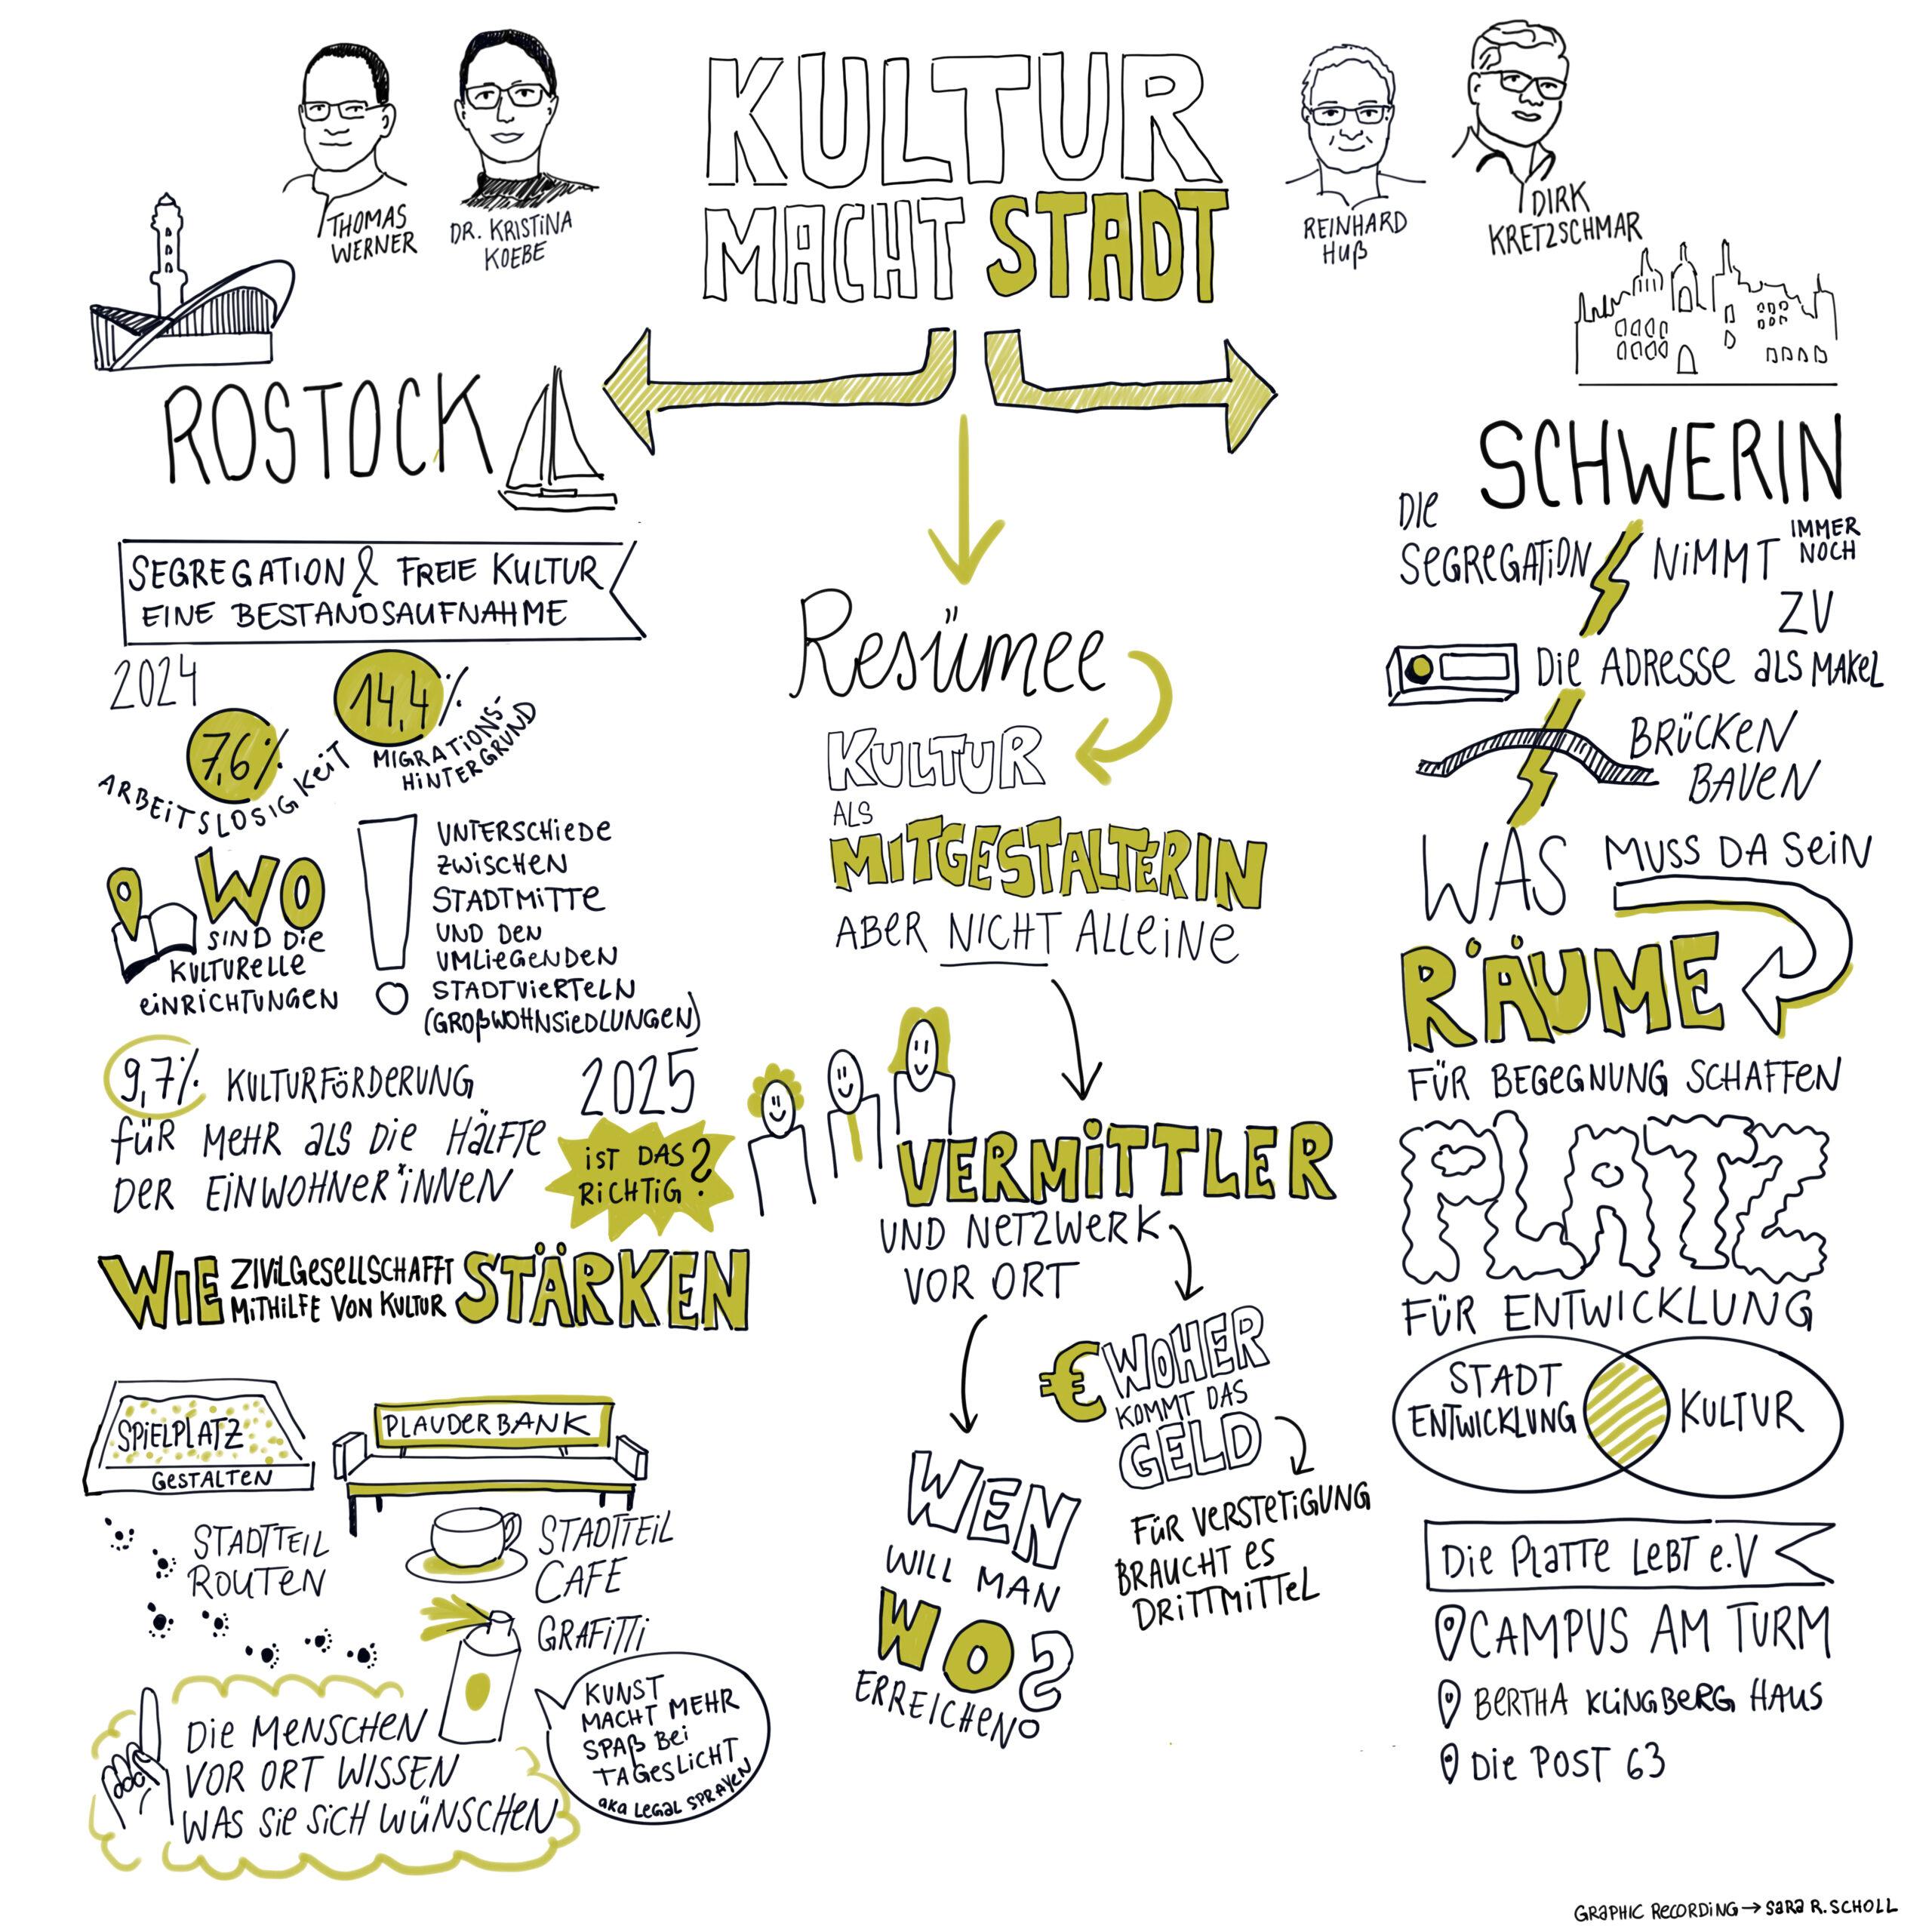 KULTUR
MACHT STADT
THOMAS
WERNER
DR. KRISTINA
KOEBE
REINHARD
HUß
DIRK
KRETZSCHMAR
ROSTOCK
SEGREGATION & FREIE KULTUR
EINE BESTANDSAUFNAHME
2024
7,6%
ARBEITSLOSIGKEIT
14,4%
MIGRATIONS-
HINTERGRUND
WO
SIND DIE
KULTURELLE
EINRICHTUNGEN
!
UNTERSCHIEDE
ZWISCHEN
STADTMITTE
UND DEN
UMLIEGENDEN
STADTVIERTELN
(GROßWOHNSIEDLUNGEN)
9,7% KULTURFÖRDERUNG
FÜR MEHR ALS DIE HÄLFTE
DER EINWOHNER*INNEN
2025
IST DAS
RICHTIG?
WIE ZIVILGESELLSCHAFFT
MITHILFE VON KULTUR STÄRKEN
SPIELPLATZ
GESTALTEN
PLAUDERBANK
STADTTEIL
ROUTEN
STADTTEIL
CAFE
GRAFITTI
KUNST
MACHT MEHR
SPAß BEI
TAGESLICHT
AKA LEGAL SPRAYEN
DIE MENSCHEN
VOR ORT WISSEN
WAS SIE SICH WÜNSCHEN
Resümee
KULTUR
ALS
MITGESTALTERIN
ABER NICHT ALLEINE
VERMITTLER
UND NETZWERK
VOR ORT
WEN
WILL MAN
WO
ERREICHEN?
€ WOHER
KOMMT DAS
GELD
FÜR VERSTETIGUNG
BRAUCHT ES
DRITTMITTEL
SCHWERIN
DIE
SEGREGATION NIMMT IMMER
NOCH
ZU
DIE ADRESSE ALS MAKEL
BRÜCKEN
BAUEN
WAS MUSS DA SEIN
RÄUME
FÜR BEGEGNUNG SCHAFFEN
PLATZ
FÜR ENTWICKLUNG
STADT
ENTWICKLUNG
KULTUR
DIE PLATTE LEBT e.V
CAMPUS AM TURM
BERTHA KLINGBERG HAUS
DIE POST 63
GRAPHIC RECORDING → SARA R. SCHOLL